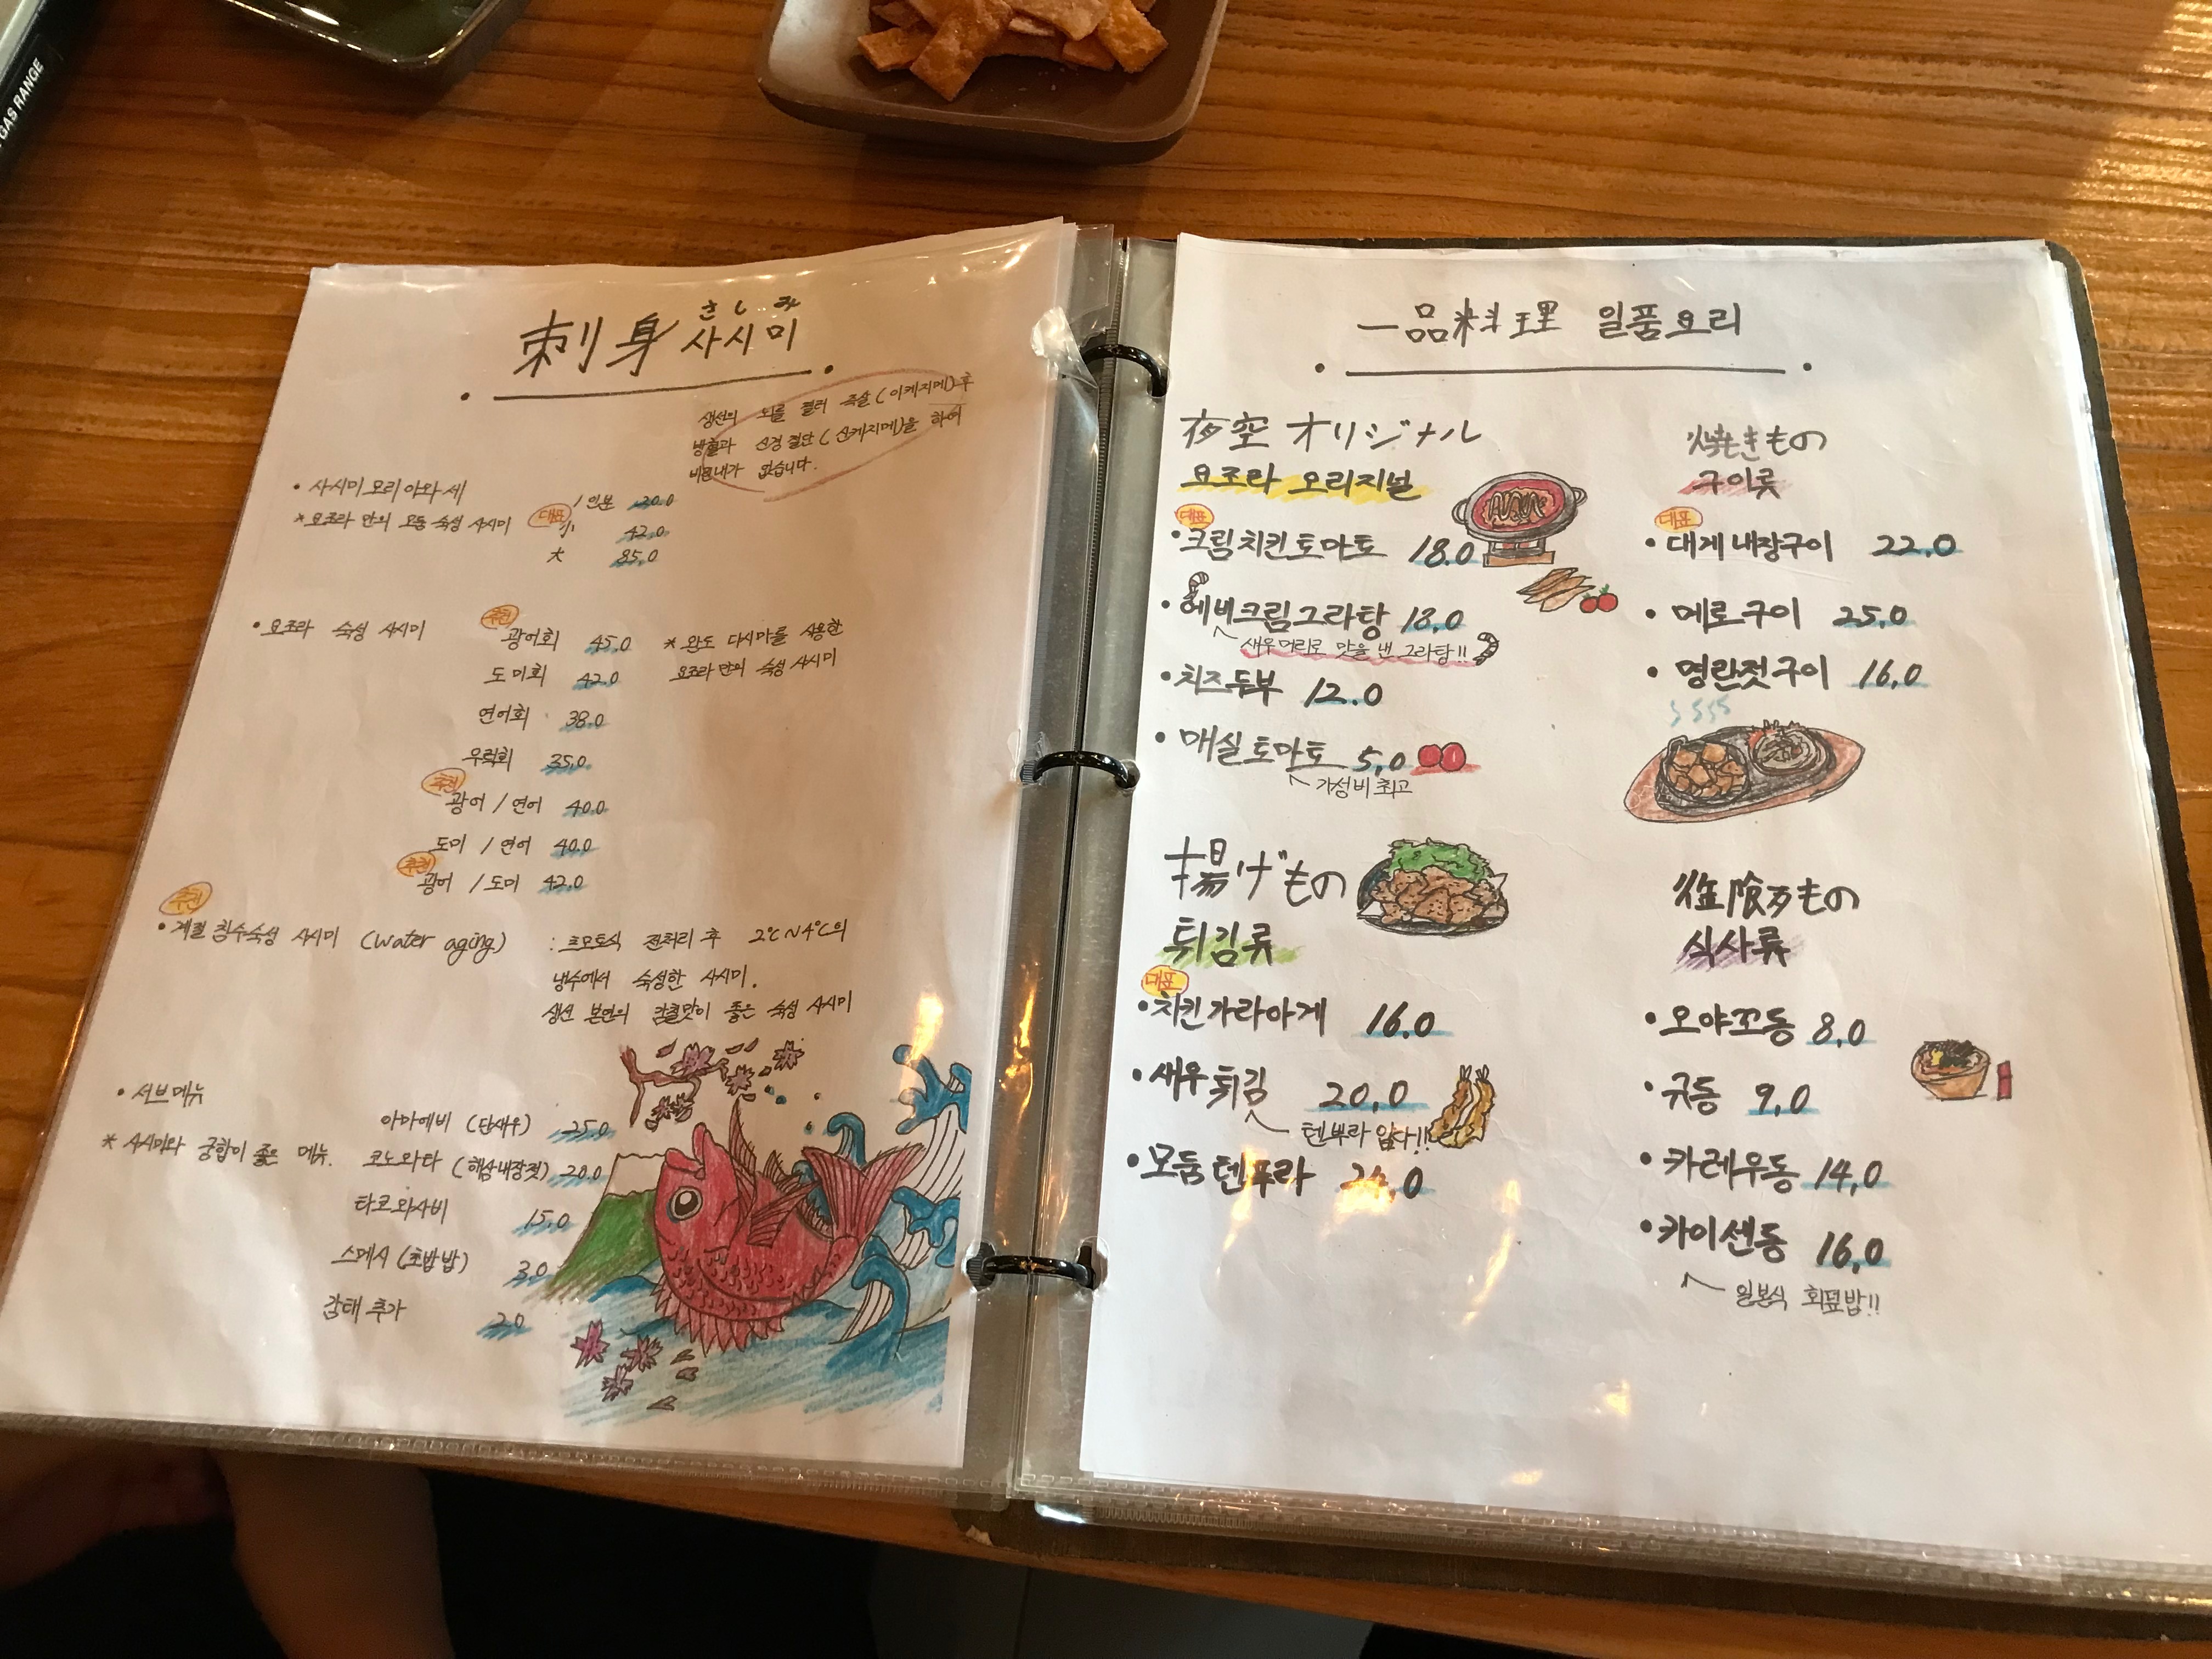 GAS RANGE
さしみ
刺身 사시미
생선의 뇌를 찔러 즉살(이케지메)후
방혈과 신경 절단(신케지메)을 하여
비린내가 없습니다.
• 사시미 모리아와세
* 요조라 만의 모둠 숙성 사시미
대표
1인분 30.0
小 42.0
大 85.0
• 요조라 숙성 사시미
추천
광어회 45.0
* 완도 다시마를 사용한
요조라만의 숙성 사시미
도미회 42.0
연어회 38.0
우럭회 35.0
추천
광어 / 연어 40.0
도미 / 연어 40.0
추천
광어 / 도미 42.0
추천
• 계절 침수숙성 사시미 (water aging) : 츠모토식 전처리 후 2℃~4℃의
냉수에서 숙성한 사시미.
생선 본연의 감칠맛이 좋은 숙성 사시미
• 서브메뉴
* 사시미와 궁합이 좋은 메뉴.
아마에비 (단새우) 25.0
코노와타 (해삼내장젓) 20.0
타코와사비 15.0
스메시 (초밥밥) 3.0
감태 추가 2.0
一品料理 일품요리
夜空 オリジナル
요조라 오리지널
대표
• 크림치킨토마토 18.0
• 에비크림그라탕 18.0
새우머리로 맛을 낸 그라탕!!
• 치즈두부 12.0
• 매실토마토 5.0
가성비 최고
揚げもの
튀김류
대표
• 치킨가라아게 16.0
• 새우튀김 20.0
텐뿌라 입다!!
• 모둠텐푸라
焼きもの
구이류
대표
• 대게내장구이 22.0
• 메로구이 25.0
• 명란젓구이 16.0
もの
식사류
• 오야꼬동 8.0
• 규동 9.0
• 카레우동 14.0
• 카이센동 16.0
일본식 회덮밥!!